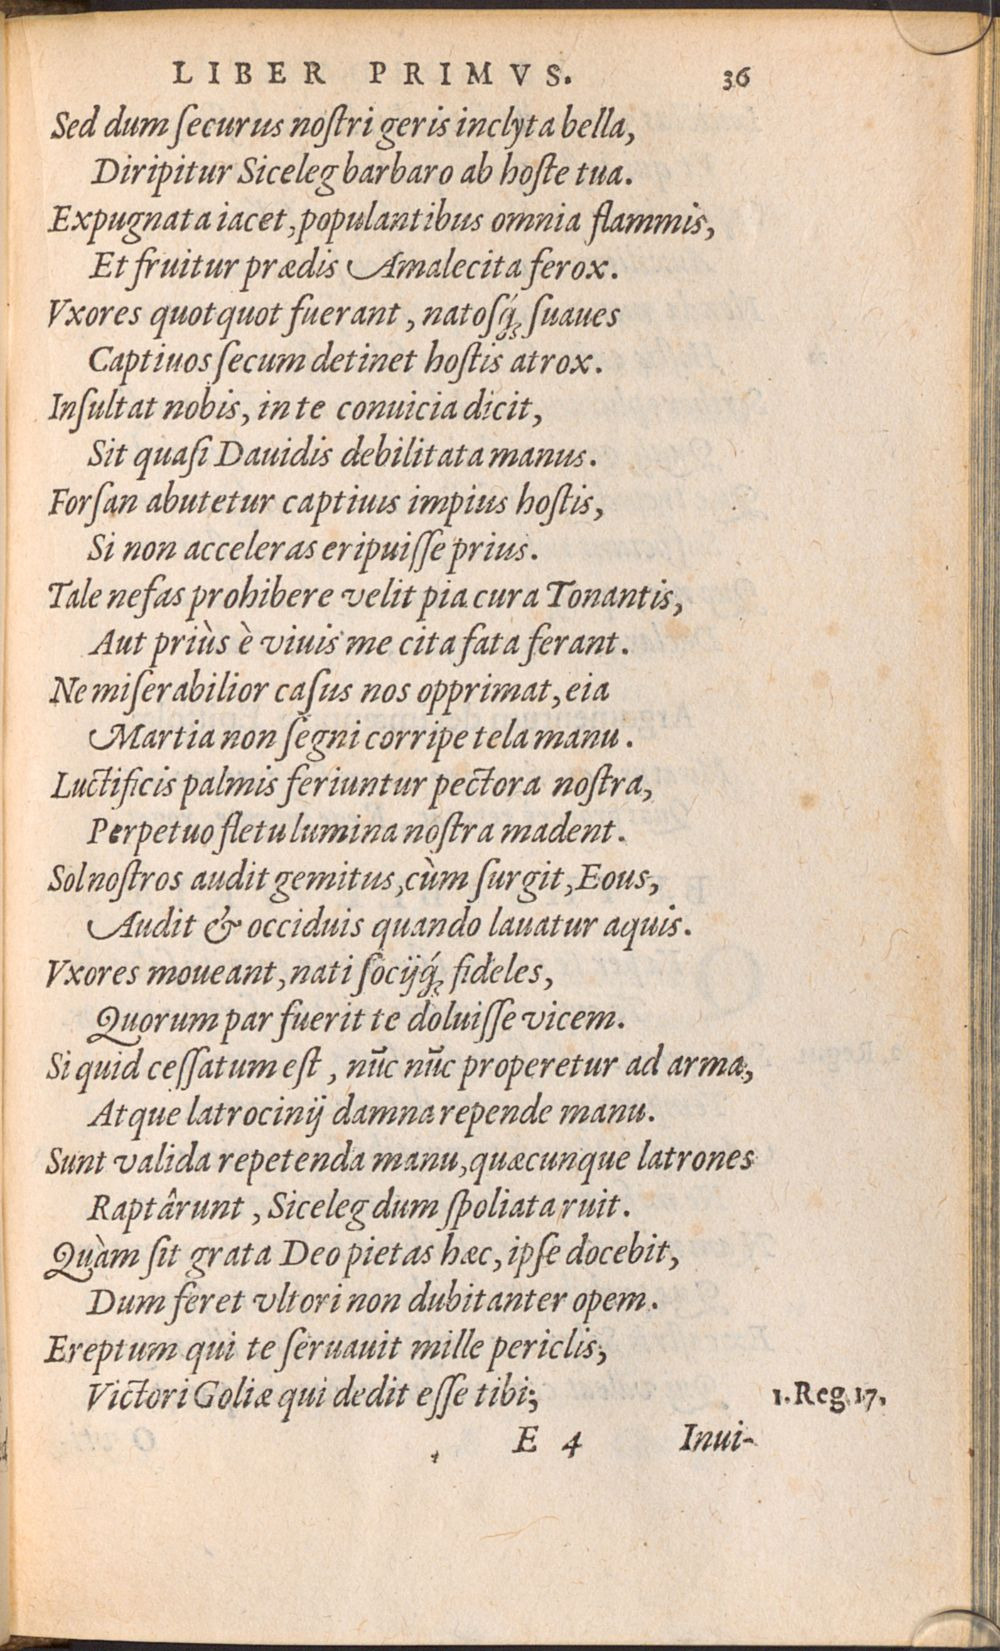 LIBER PRIMVS. 36
Sed dum ſecurus noſtri geris inclyta bella,
Diripitur Siceleg barbaro ab hoſte tua.
Expugnata iacet, populantibus omnia flammis,
Et fruitur prædis Amalecita ferox.
Vxores quotquot fuerant, natoſq́; ſuaues
Captiuos ſecum detinet hoſtis atrox.
Inſultat nobis, in te conuicia dicit,
Sit quaſi Dauidis debilitata manus.
Forſan abutetur captiuis impius hoſtis,
Si non acceleras eripuiſſe prius.
Tale nefas prohibere velit pia cura Tonantis,
Aut priùs è viuis me cita fata ferant.
Ne miſerabilior caſus nos opprimat, eia
Martia non ſegni corripe tela manu.
Luctificis palmis feriuntur pectora noſtra,
Perpetuo fletu lumina noſtra madent.
Sol noſtros audit gemitus, cùm ſurgit, Eous,
Audit & occiduis quando lauatur aquis.
Vxores moueant, nati ſocijq́; fideles,
Quorum par fuerit te doluiſſe vicem.
Si quid ceſſatum eſt, nūc nūc properetur ad arma,
Atque latrocinij damna repende manu.
Sunt valida repetenda manu, quæcunque latrones
Raptârunt, Siceleg dum ſpoliata ruit.
Quàm ſit grata Deo pietas hæc, ipſe docebit,
Dum feret vltori non dubitanter opem.
Ereptum qui te ſeruauit mille periclis,
Victori Goliæ qui dedit eſſe tibi; 1. Reg. 17.
E 4 Inui-